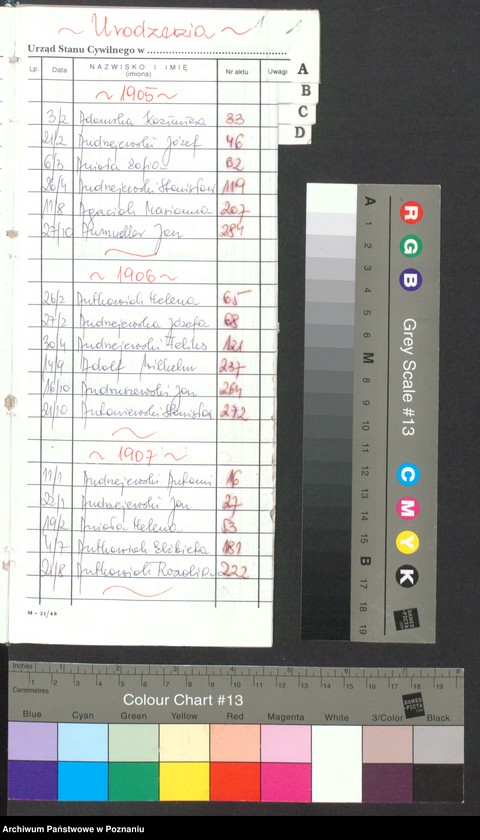 ~ Urodzenia ~ 1
Urząd Stanu Cywilnego w
Lp. Data NAZWISKO I IMIĘ (imiona) Nr aktu Uwagi
A
B
C
D
~ 1905 ~
3/2 Adamska Kazimiera 33
21/2 Andrzejewski Józef 46
6/3 Anioła Zofia 62
26/4 Andrzejewski Stanisław 119
11/8 Marianna 207
27/10 Jan 284
~ 1906 ~
26/2 Antkowiak Helena 65
27/2 Andrzejewska Józefa 68
30/4 Andrzejewski Feliks 121
14/9 Adolf Wilhelm 237
16/10 Andruszewski Jan 264
21/10 Antoniewski Stanisław 272
~ 1907 ~
11/1 Andrzejewski Antoni 16
22/1 Andrzejewski Jan 27
19/2 Anioła Helena 53
4/7 Antkowiak Elżbieta 181
21/8 Antkowiak Rozalia 222
M - 21/48
A 1 2 3 4 5 6 M 8 9 10 11 12 13 14 15 B 17 18 19
R G B
Grey Scale #13
C M Y K
DANES PICTA
Inches 1 2 3 4 5 6 7 8
Centimetres 1 2 3 4 5 6 7 8 9 10 11 12 13 14 15 16 17 18 19
Colour Chart #13
DANES PICTA
Blue Cyan Green Yellow Red Magenta White 3/Color Black
Archiwum Państwowe w Poznaniu